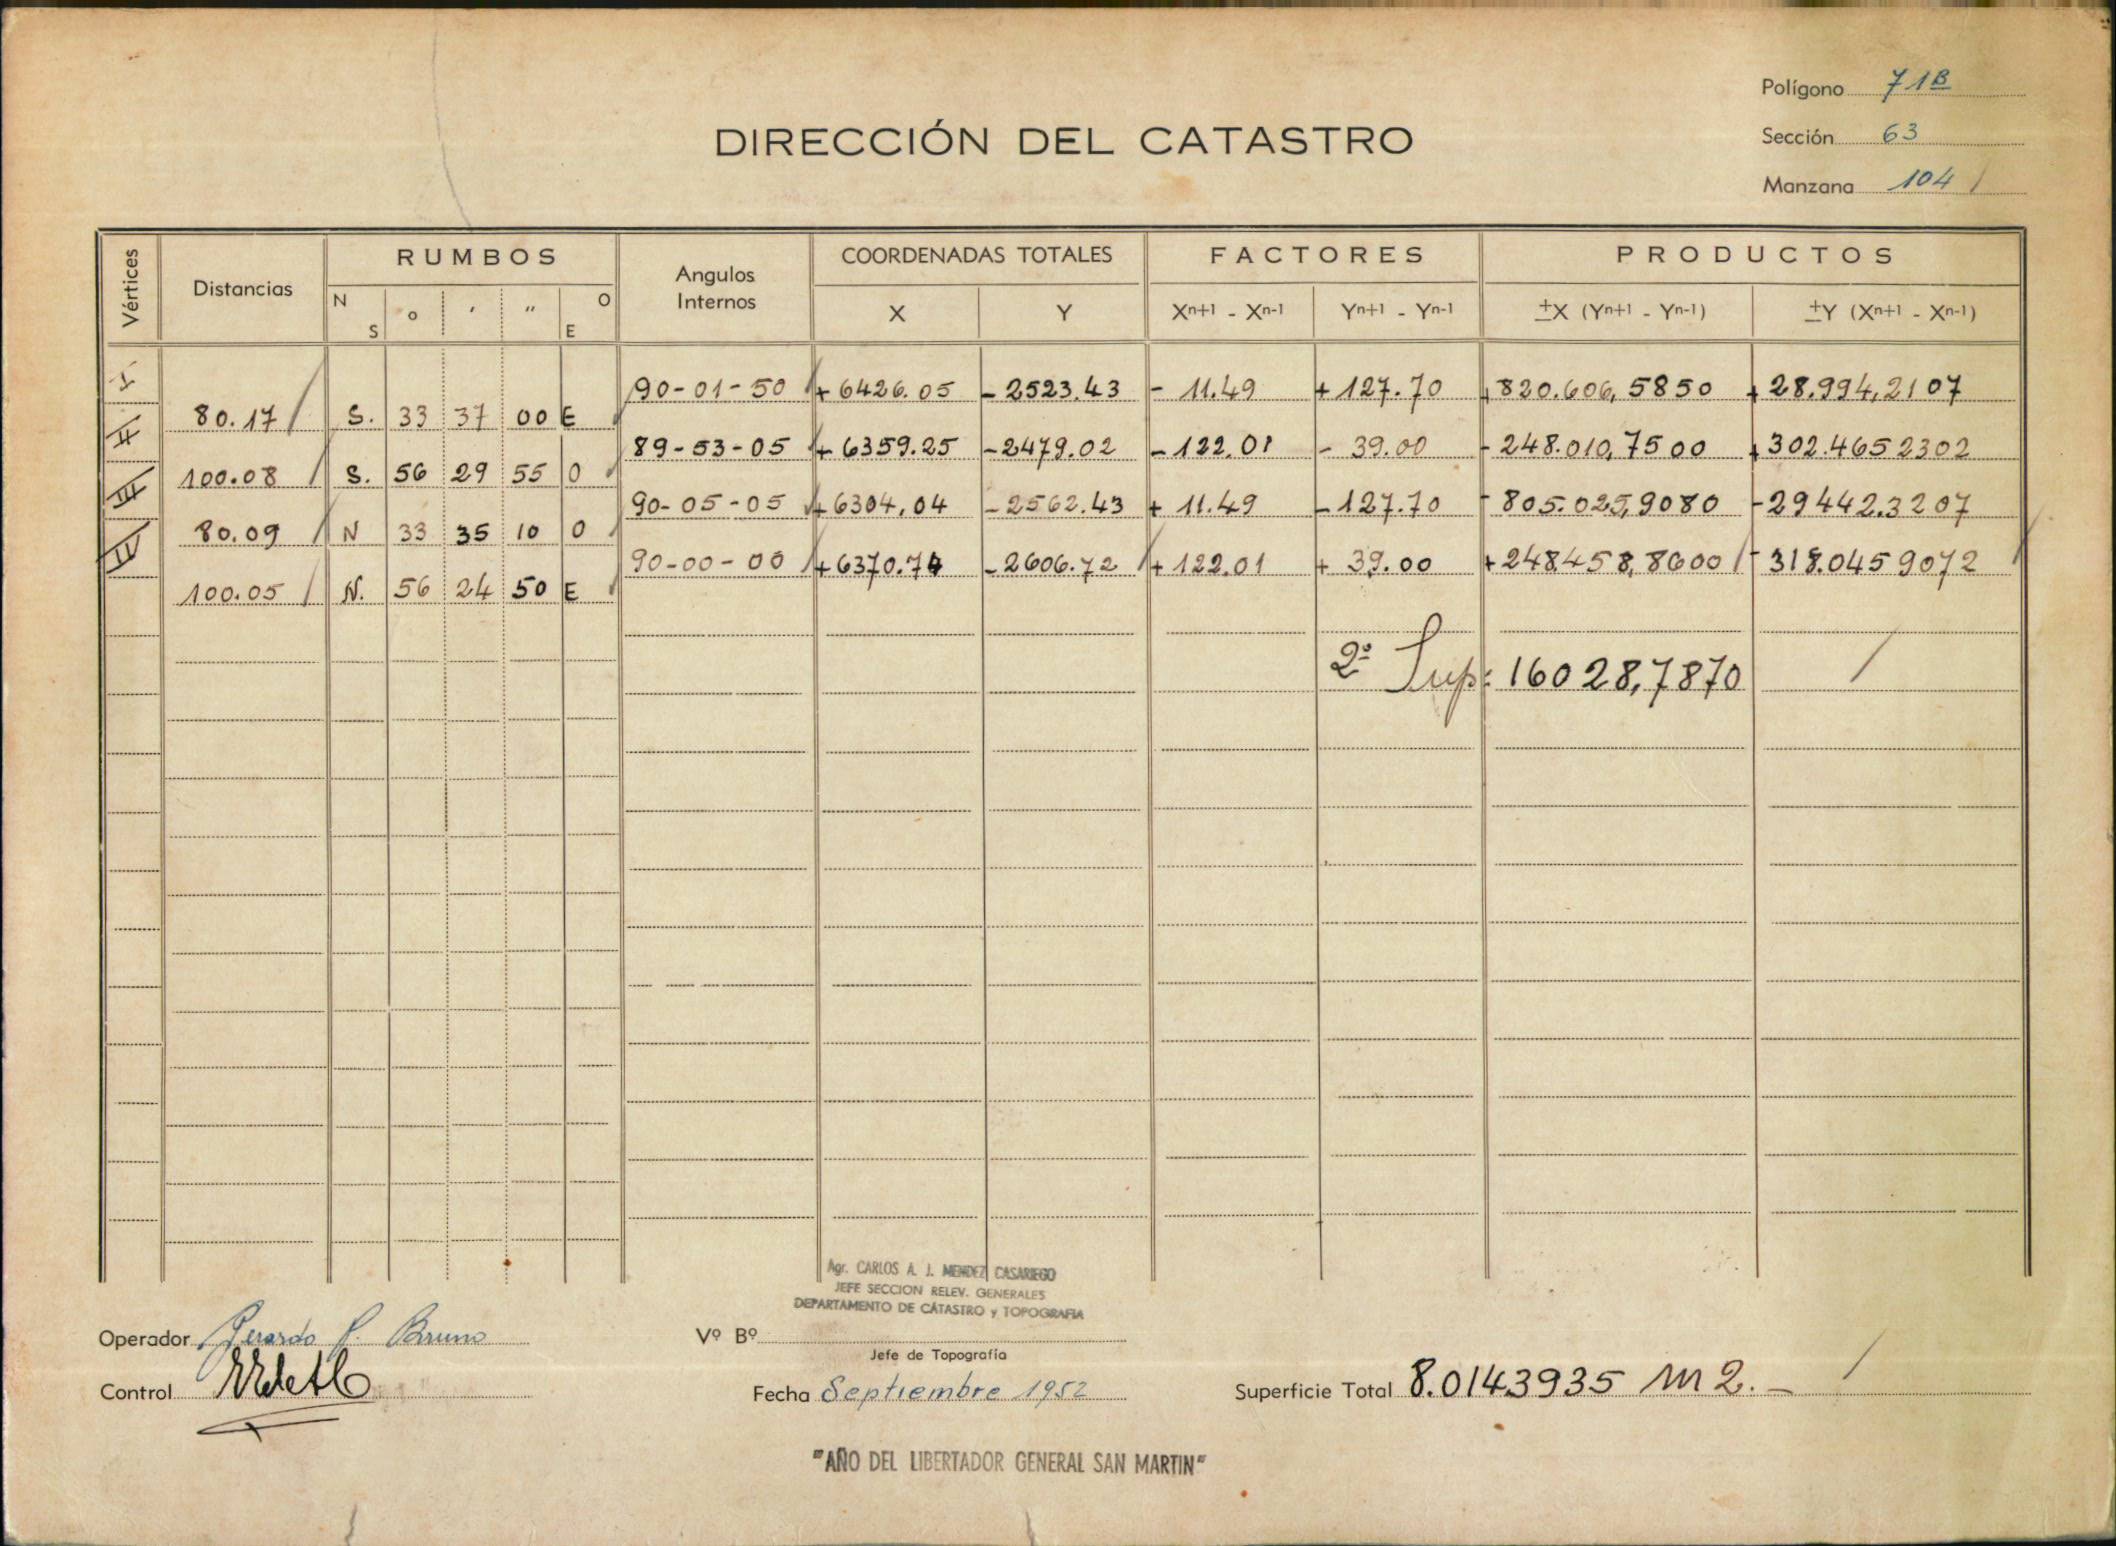 Polígono 71B
DIRECCIÓN DEL CATASTRO
Sección 63
Manzana 104
Vértices Distancias RUMBOS Angulos Internos COORDENADAS TOTALES FACTORES PRODUCTOS
N S o ' " O E X Y Xn+1 - Xn-1 Yn+1 - Yn-1 ±X (Yn+1 - Yn-1) ±Y (Xn+1 - Xn-1)
I 90-01-50 +6426.05 -2523.43 - 11.49 +127.70 +820.606,5850 +28.994,2107
80.17 S. 33 37 00 E
II 89-53-05 +6359.25 -2479.02 -122.01 - 39.00 -248.010,7500 +302.4652302
100.08 S. 56 29 55 O
III 90-05-05 +6304,04 -2562.43 + 11.49 -127.70 -805.025,9080 -29442.3207
80.09 N 33 35 10 O
IV 90-00-00 +6370.74 -2606.72 +122.01 + 39.00 +248.458,8600 -318.0459072
100.05 N. 56 24 50 E
2º Sup: 16028,7870
Agr. CARLOS A. J. MENDEZ CASARIEGO
JEFE SECCION RELEV. GENERALES
DEPARTAMENTO DE CATASTRO y TOPOGRAFIA
Operador Gerardo P. Bruno
Vº Bº
Jefe de Topografía
Control
Fecha Septiembre 1952
Superficie Total 8.0143935 m2.-
"AÑO DEL LIBERTADOR GENERAL SAN MARTIN"